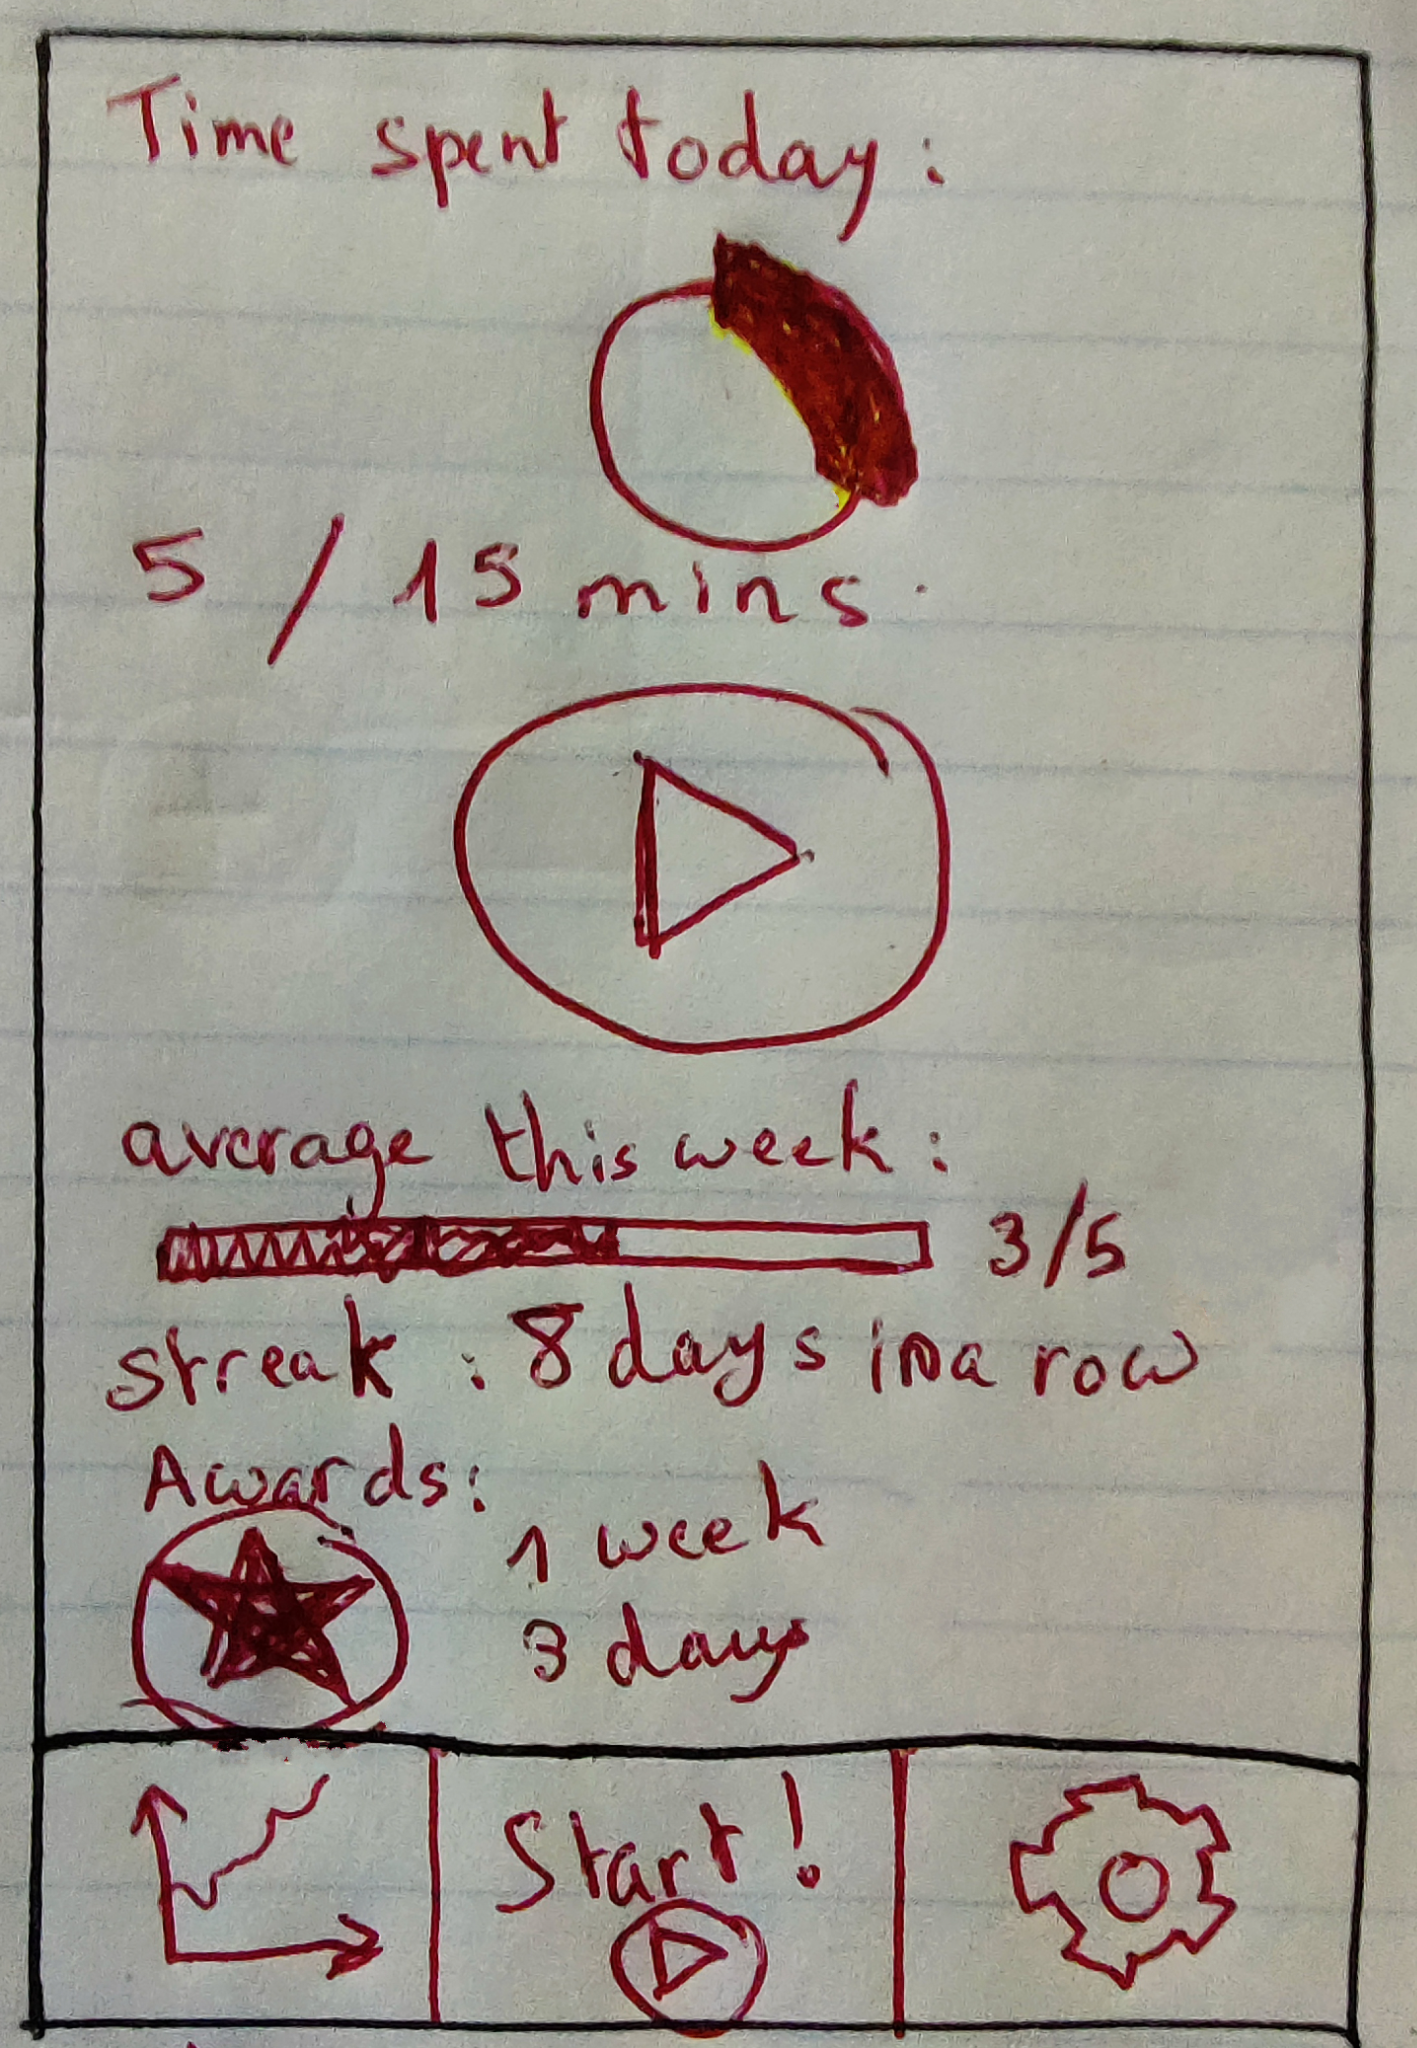 Time spent today:
5 / 15 mins.
average this week:
3/5
streak : 8 days in a row
Awards:
1 week
3 days
Start!